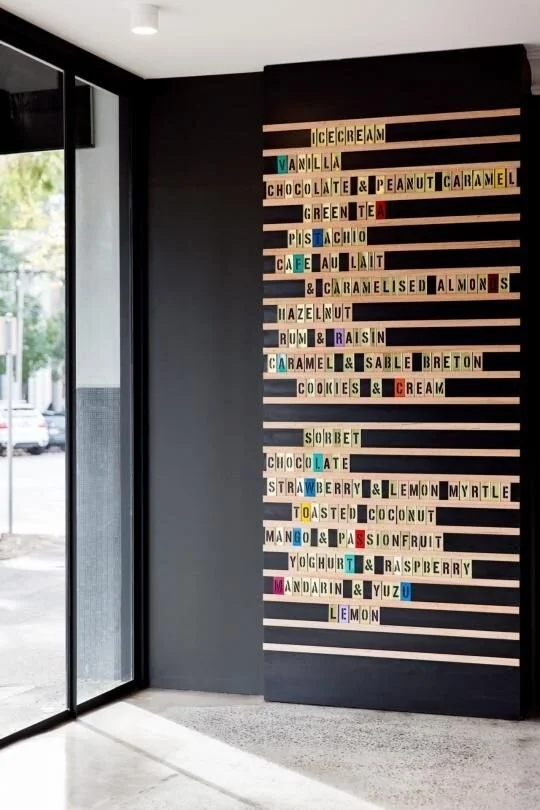 ICECREAM
VANILLA
CHOCOLATE & PEANUT CARAMEL
GREEN TEA
PISTACHIO
CAFE AU LAIT
& CARAMELISED ALMONDS
HAZELNUT
RUM & RAISIN
CARAMEL & SABLE BRETON
COOKIES & CREAM
SORBET
CHOCOLATE
STRAWBERRY & LEMON MYRTLE
TOASTED COCONUT
MANGO & PASSIONFRUIT
YOGHURT & RASPBERRY
MANDARIN & YUZU
LEMON